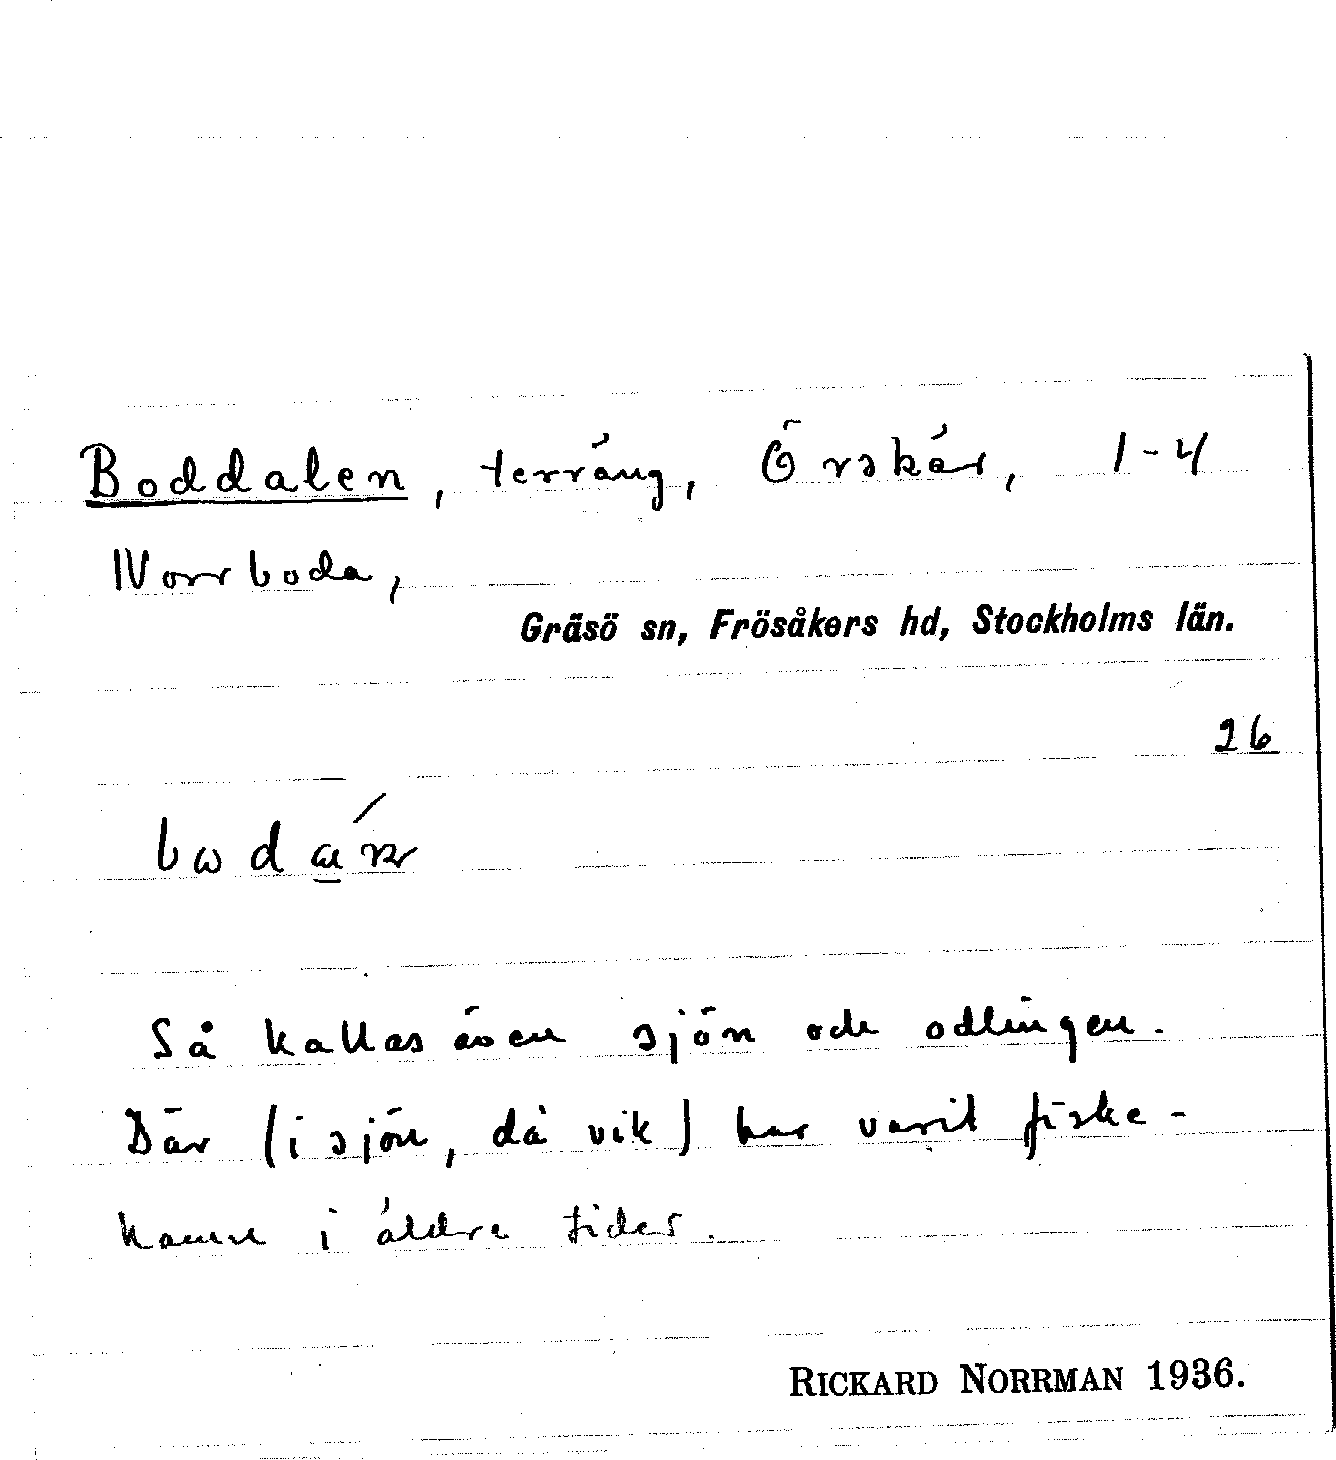 Boddalen, terräng, Örskär, 1-4
Norrboda,
Gräsö sn, Frösåkers hd, Stockholms län.
26
Så kallas även sjön och odlingen.
Där (i sjön, då vik) har varit fiske-
hamn i äldre tider.
RICKARD NORRMAN 1936.